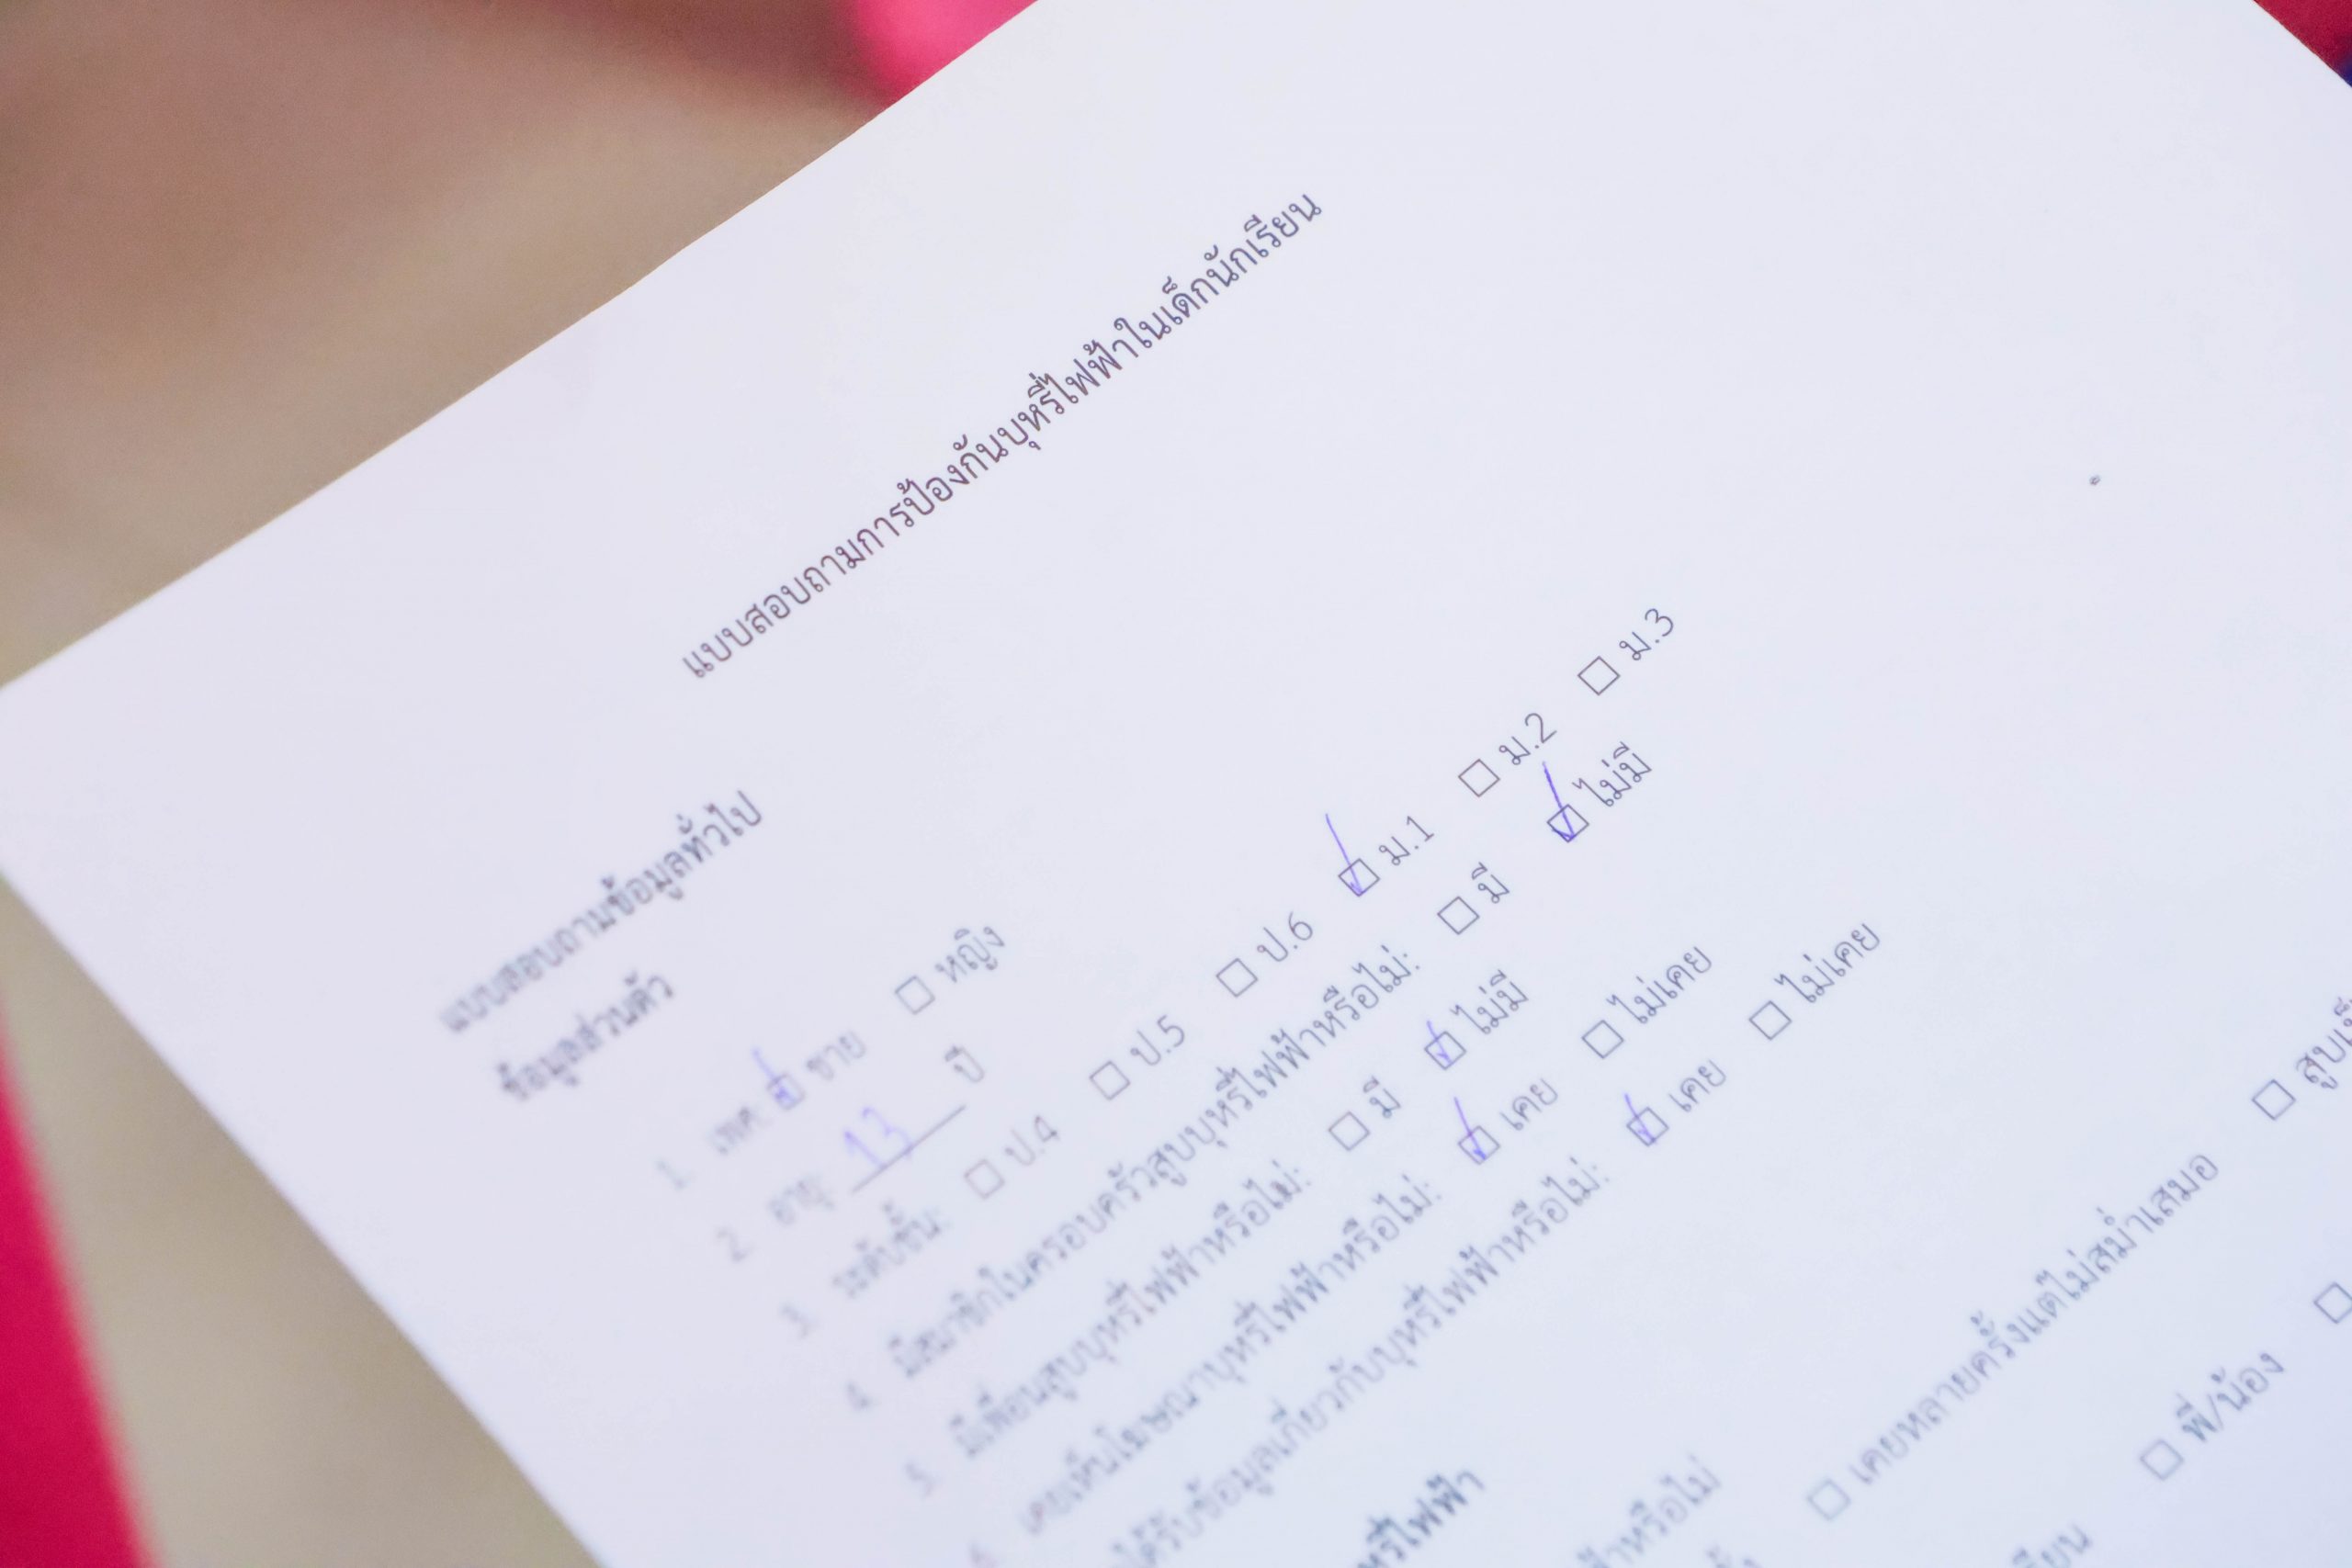 แบบสอบถามการป้องกันบุหรี่ไฟฟ้าในเด็กนักเรียน
แบบสอบถามข้อมูลทั่วไป
ข้อมูลส่วนตัว
1. เพศ: ☑ ชาย ☐ หญิง
2. อายุ: 13 ปี
3. ระดับชั้น: ☐ ป.4 ☐ ป.5 ☐ ป.6 ☑ ม.1 ☐ ม.2 ☐ ม.3
4. มีสมาชิกในครอบครัวสูบบุหรี่ไฟฟ้าหรือไม่: ☐ มี ☑ ไม่มี
5. มีเพื่อนสูบบุหรี่ไฟฟ้าหรือไม่: ☐ มี ☑ ไม่มี
6. เคยเห็นโฆษณาบุหรี่ไฟฟ้าหรือไม่: ☑ เคย ☐ ไม่เคย
ได้รับข้อมูลเกี่ยวกับบุหรี่ไฟฟ้าหรือไม่: ☑ เคย ☐ ไม่เคย
หรี่ไฟฟ้า
หรือไม่
☐ เคยหลายครั้งแต่ไม่สม่ำเสมอ ☐
☐ พี่/น้อง ☐